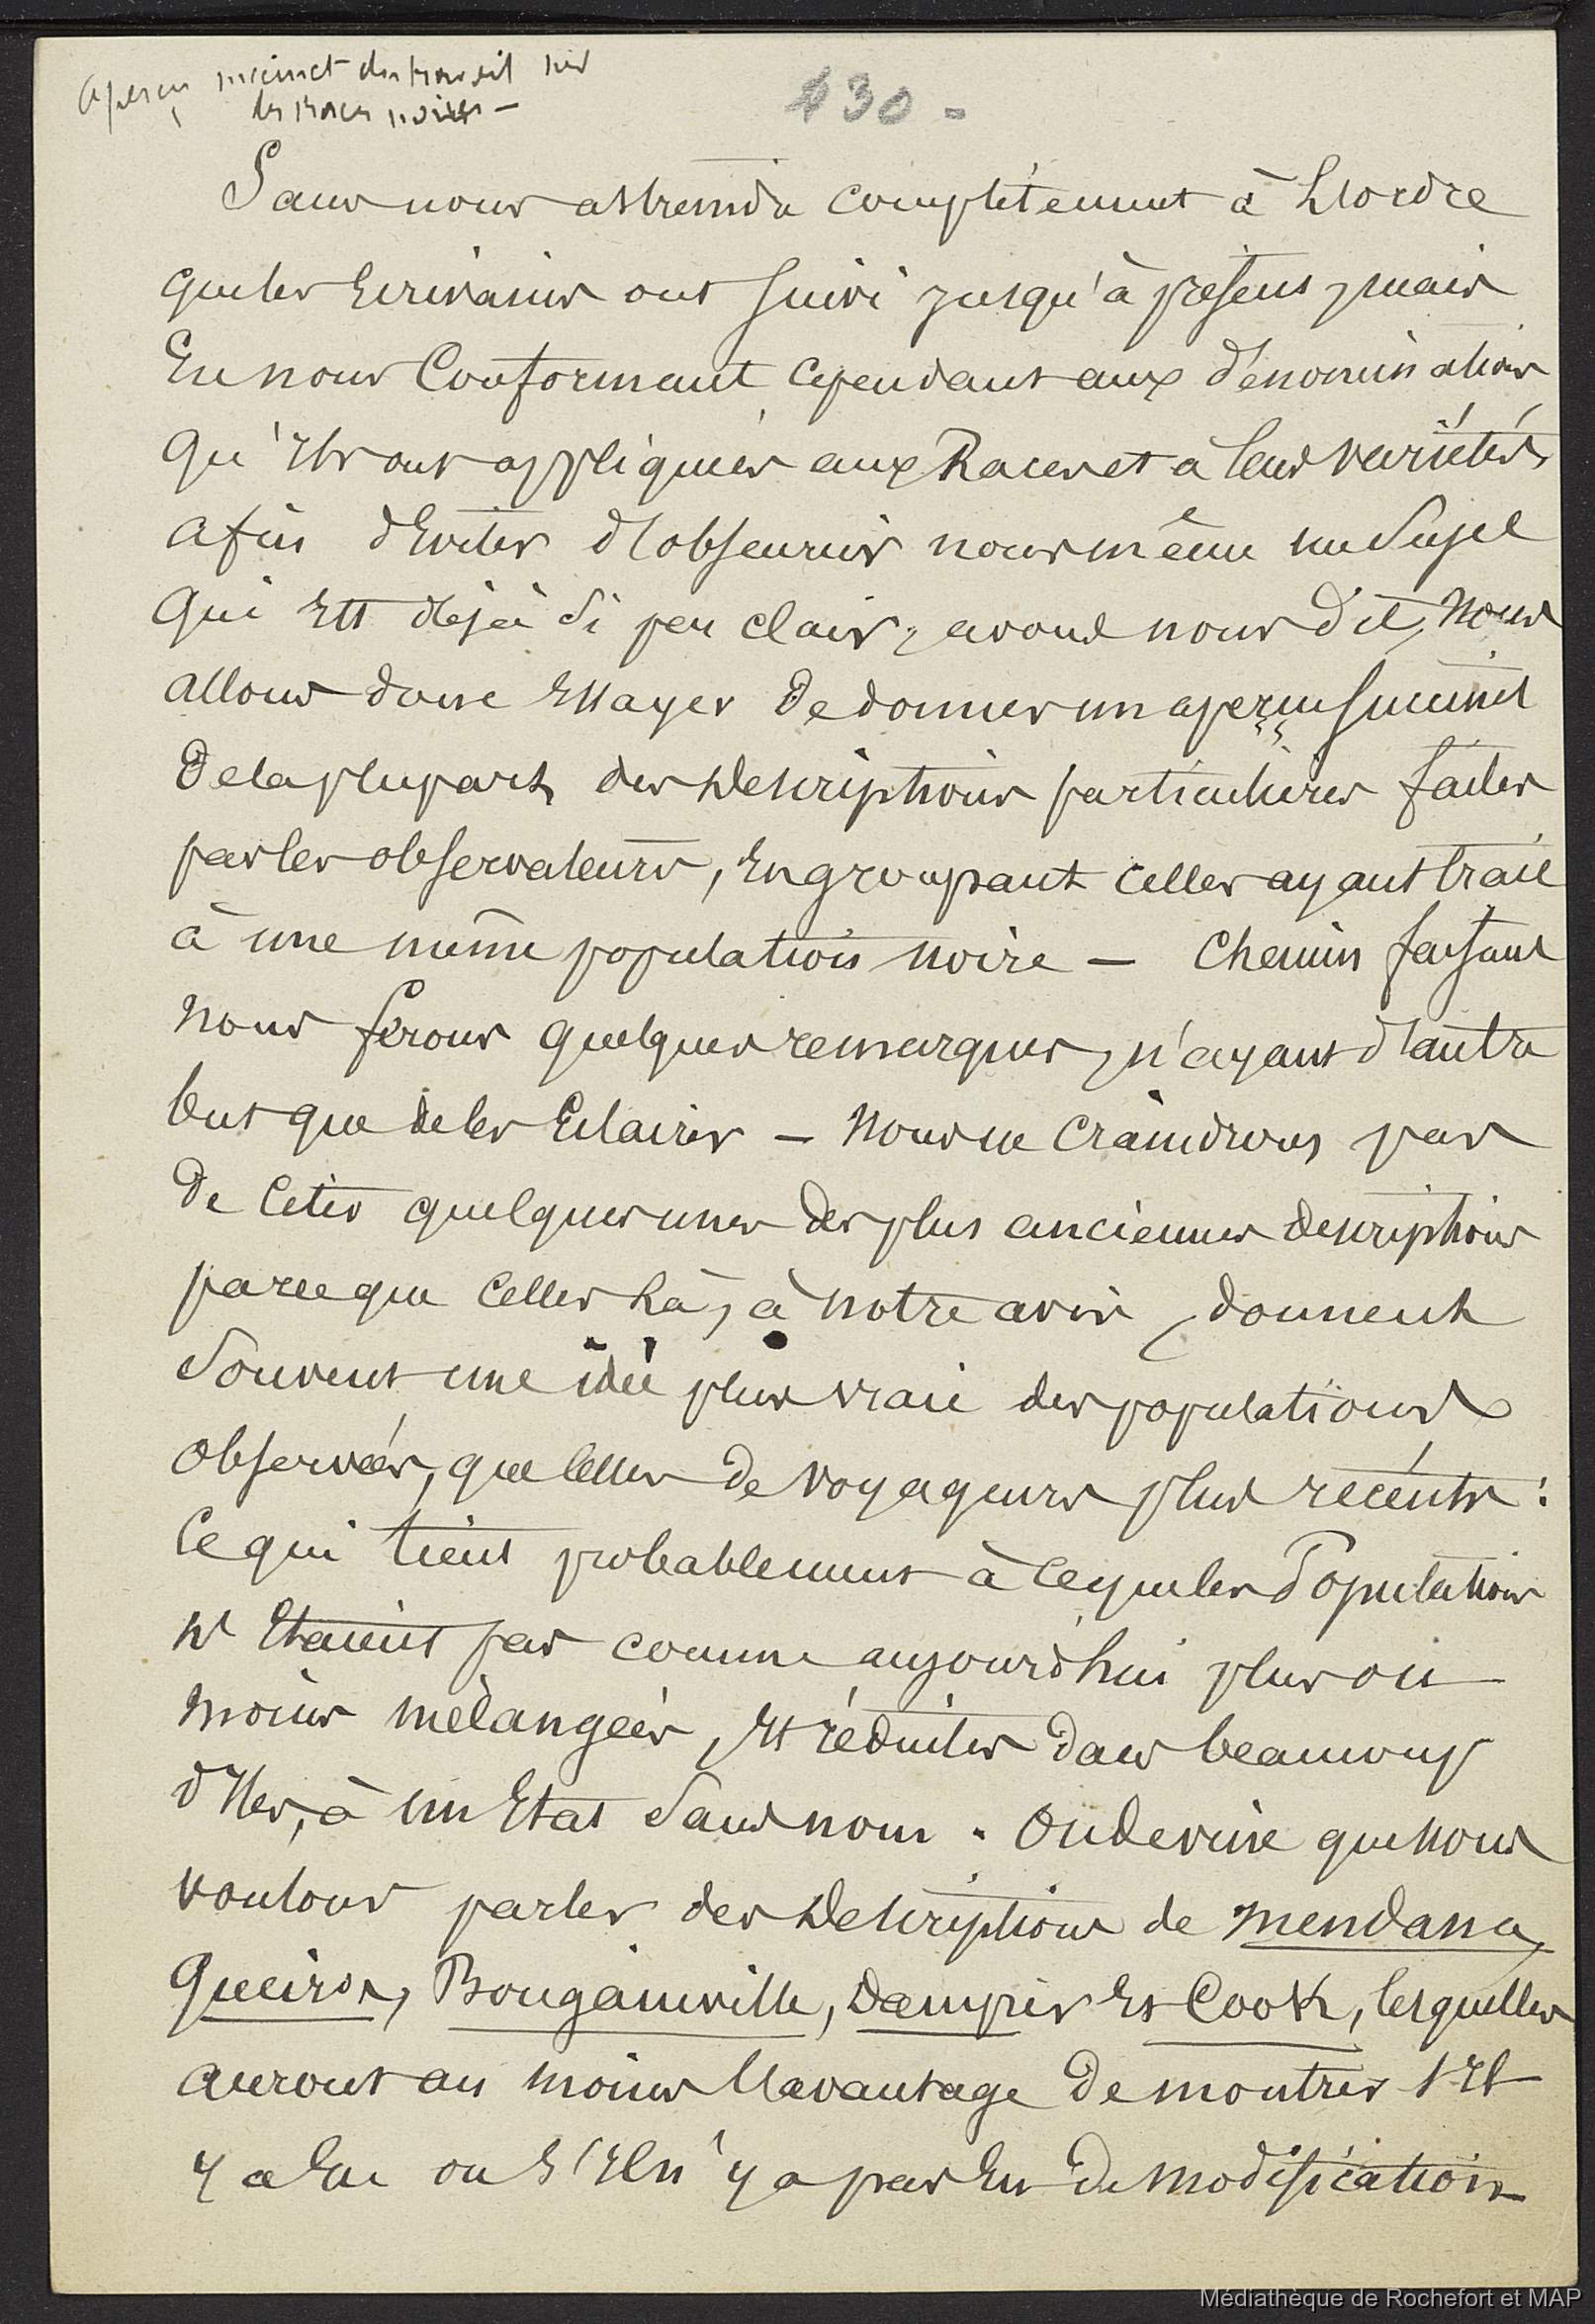 aperçu succinct du travail sur
les races noires —
130 -
Sans nous astreindre complètement à L'ordre
que les Ecrivains ont suivi jusqu'à présent, mais
En nous Conformant cependant aux dénominations
qu'Ils ont appliquées aux Races et à leurs variétés,
afin d'Eviter d'obscurcir nous même un Sujet
qui Est déjà Si peu clair, avons nous dit, Nous
allons donc Essayer de donner un aperçu Succinct
De la plupart des Descriptions particulières faites
par les observateurs, En groupant celles ayant trait
à une même population noire — Chemin faisant
nous ferons quelques remarques, n'ayant d'autre
but que de les Eclairer — Nous ne craindrons pas
De Citer quelques unes des plus anciennes descriptions
parce que Celles Là, à notre avis, donnent
Souvent une idée plus vraie des populations
observées, que celles de voyageurs plus récents :
Ce qui tient probablement à ce que les Populations
n'Etaient pas comme aujourd'hui plus ou
moins mélangées, Et réduites dans beaucoup
d'Iles, à un Etat Sans nom. On devine que nous
voulons parler des Descriptions de Mendana,
Queiros, Bougainville, Dampier Et Cook, lesquelles
auront au moins l'avantage de montrer s'Il
y a Eu ou s'Il n'y a pas Eu de modification
Médiathèque de Rochefort et MAP